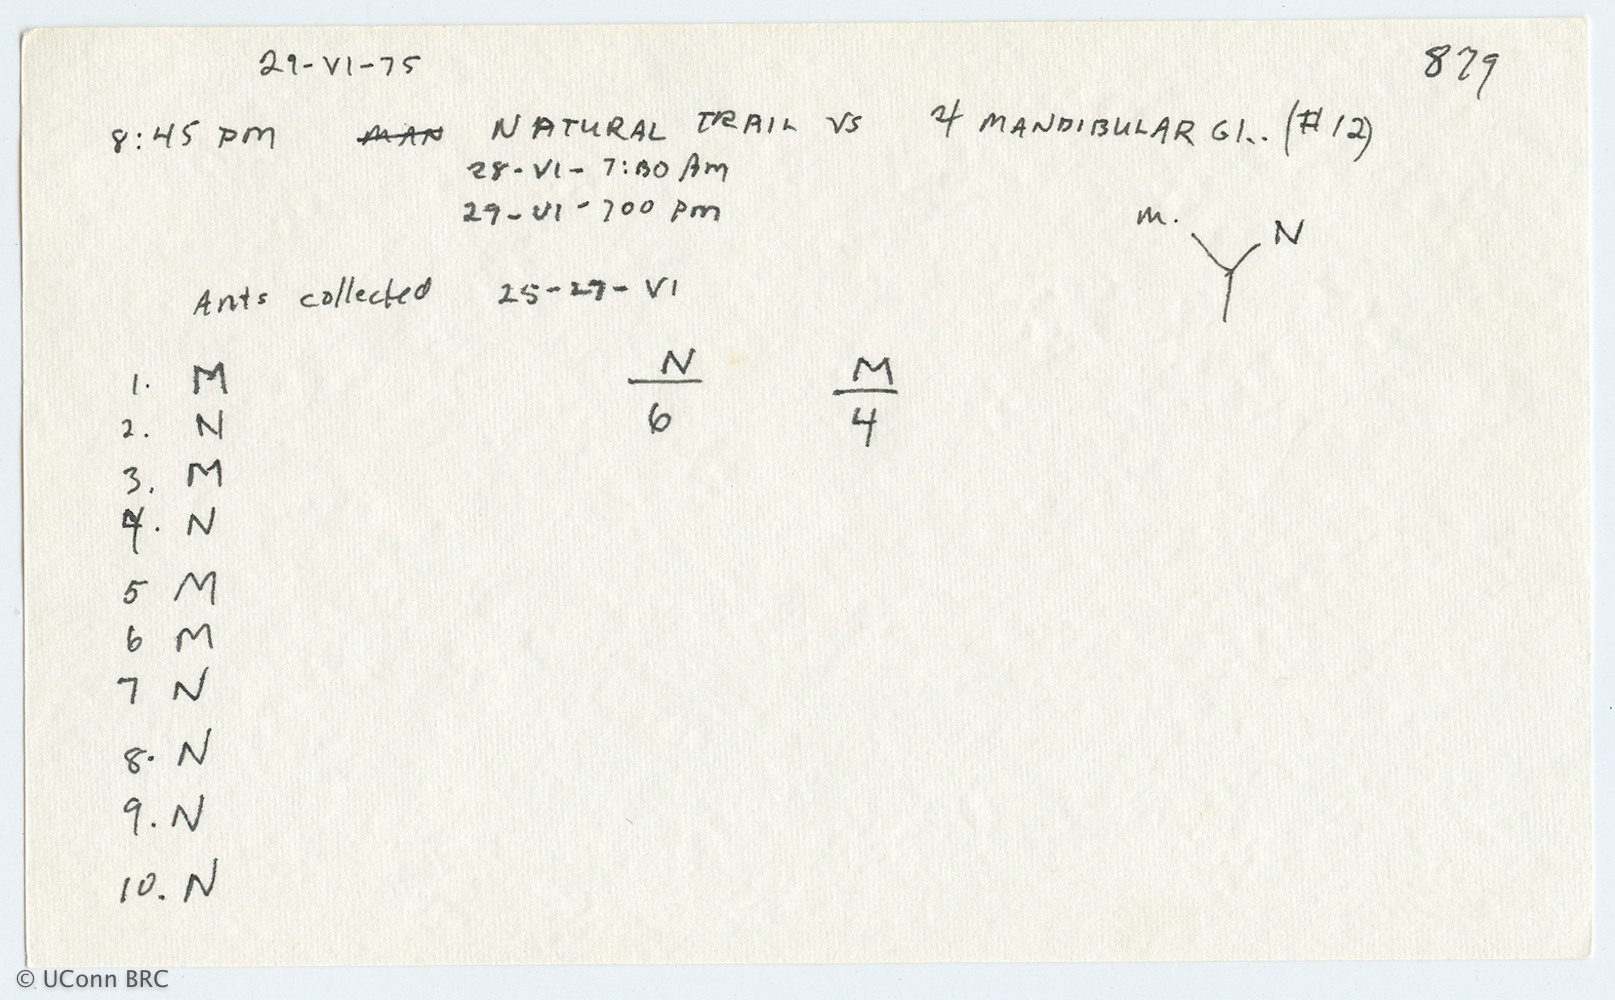 29-VI-75
879
8:45 pm MAN NATURAL TRAIL VS 4 MANDIBULAR Gl.. (#12)
28-VI- 7:30 Am
29-VI-700 pm
m. N
Ants collected 25-27-VI
N M
6 4
1. M
2. N
3. M
4. N
5 M
6 M
7 N
8. N
9. N
10. N
© UConn BRC